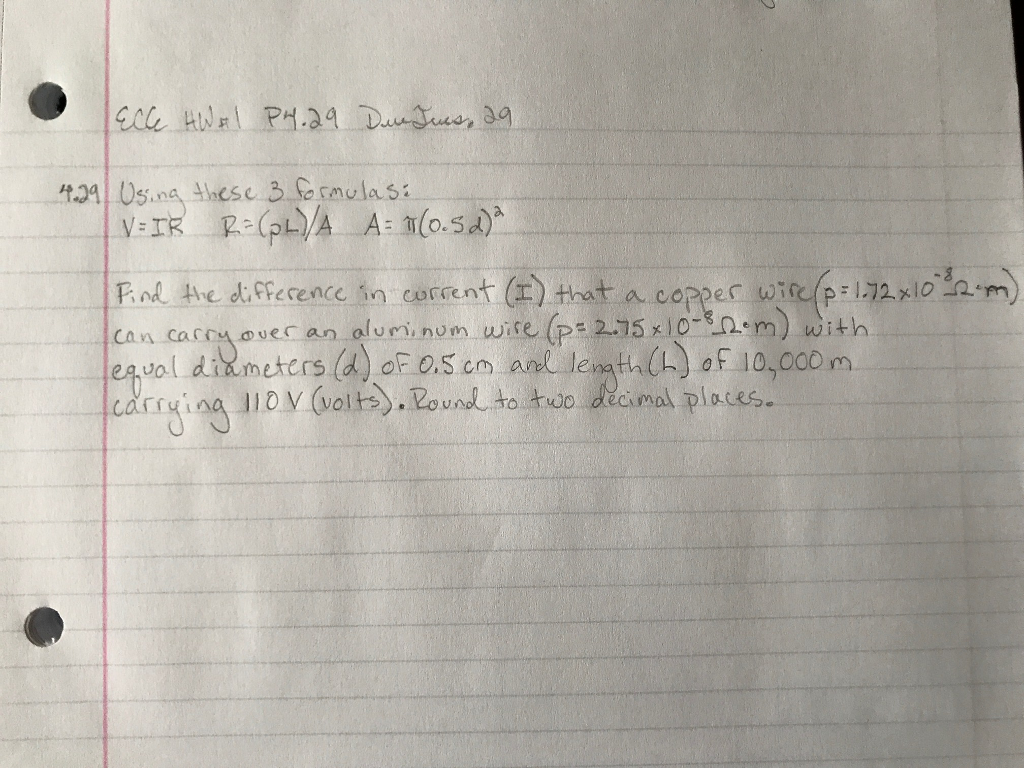 ECE HW#1 P4.29 Due Tues, 29
4.29 Using these 3 formulas:
V=IR R=(ρL)/A A= π(0.5d)²
Find the difference in current (I) that a copper wire (ρ=1.72x10⁻⁸Ω·m)
can carry over an aluminum wire (ρ= 2.75x10⁻⁸Ω·m) with
equal diameters (d) of 0.5 cm and length (L) of 10,000 m
carrying 110 V (volts). Round to two decimal places.